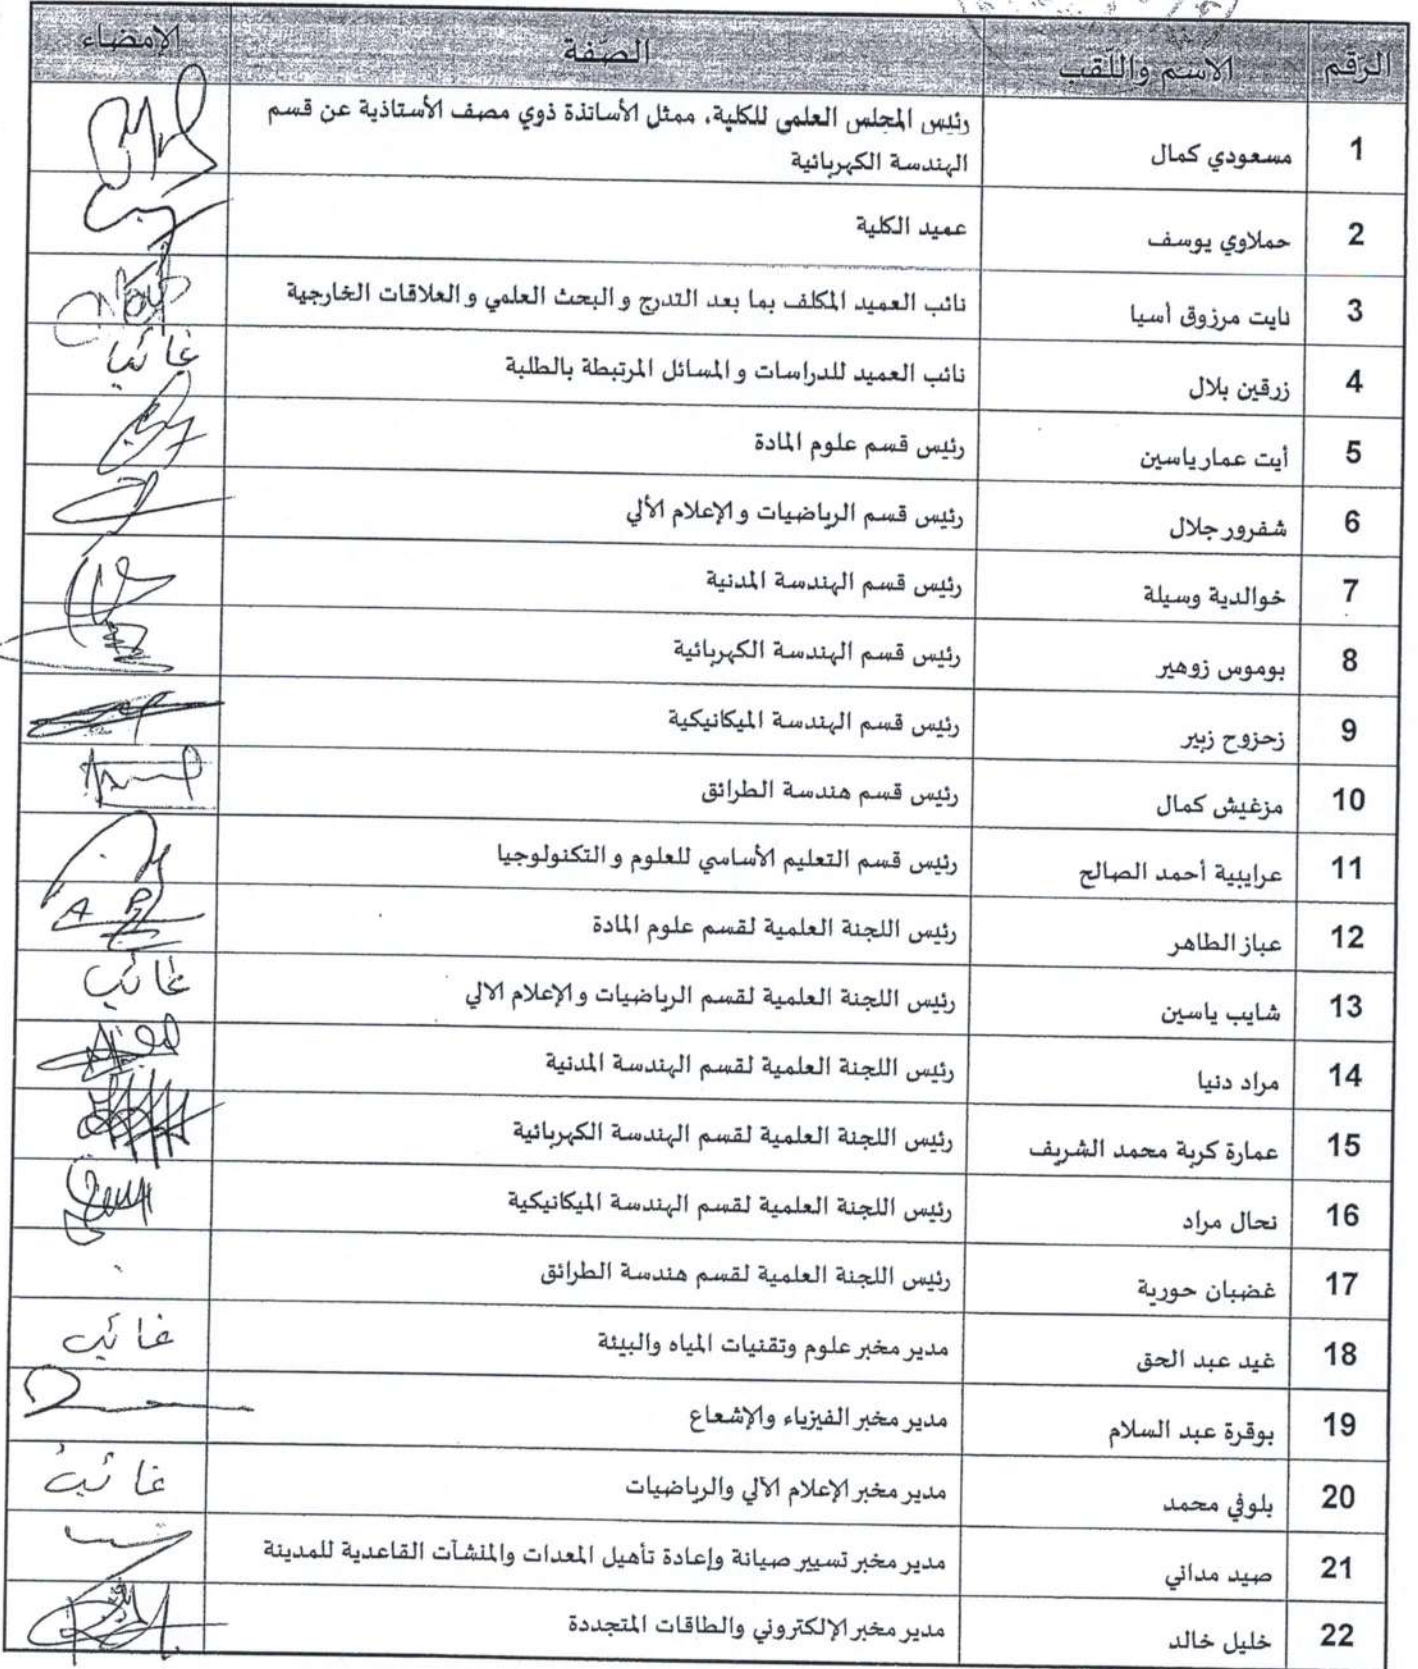 الرقم الاسم واللّقب الصّفة الإمضاء
1 مسعودي كمال رئيس المجلس العلمي للكلية، ممثل الأساتذة ذوي مصف الأستاذية عن قسم
الهندسة الكهربائية
2 حملاوي يوسف عميد الكلية
3 نايت مرزوق أسيا نائب العميد المكلف بما بعد التدرج و البحث العلمي و العلاقات الخارجية
4 زرقين بلال نائب العميد للدراسات و المسائل المرتبطة بالطلبة غائب
5 أيت عمار ياسين رئيس قسم علوم المادة
6 شفرور جلال رئيس قسم الرياضيات و الإعلام الألي
7 خوالدية وسيلة رئيس قسم الهندسة المدنية
8 بوموس زوهير رئيس قسم الهندسة الكهربائية
9 زحزوح زبير رئيس قسم الهندسة الميكانيكية
10 مزغيش كمال رئيس قسم هندسة الطرائق
11 عرايبية أحمد الصالح رئيس قسم التعليم الأساسي للعلوم و التكنولوجيا
12 عباز الطاهر رئيس اللجنة العلمية لقسم علوم المادة
13 شايب ياسين رئيس اللجنة العلمية لقسم الرياضيات و الإعلام الالي غائب
14 مراد دنيا رئيس اللجنة العلمية لقسم الهندسة المدنية
15 عمارة كربة محمد الشريف رئيس اللجنة العلمية لقسم الهندسة الكهربائية
16 نحال مراد رئيس اللجنة العلمية لقسم الهندسة الميكانيكية
17 غضبان حورية رئيس اللجنة العلمية لقسم هندسة الطرائق
18 غيد عبد الحق مدير مخبر علوم وتقنيات المياه والبيئة غائب
19 بوقرة عبد السلام مدير مخبر الفيزياء والإشعاع
20 بلوفي محمد مدير مخبر الإعلام الآلي والرياضيات غائب
21 صيد مداني مدير مخبر تسيير صيانة وإعادة تأهيل المعدات والمنشآت القاعدية للمدينة
22 خليل خالد مدير مخبر الإلكتروني والطاقات المتجددة